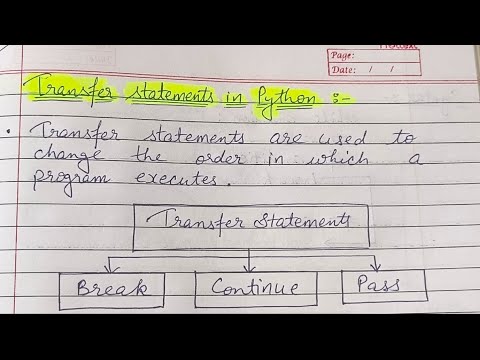 Page:
Date: / /
Transfer statements in Python :-
• Transfer statements are used to
change the order in which a
program executes.
Transfer Statements
Break Continue Pass